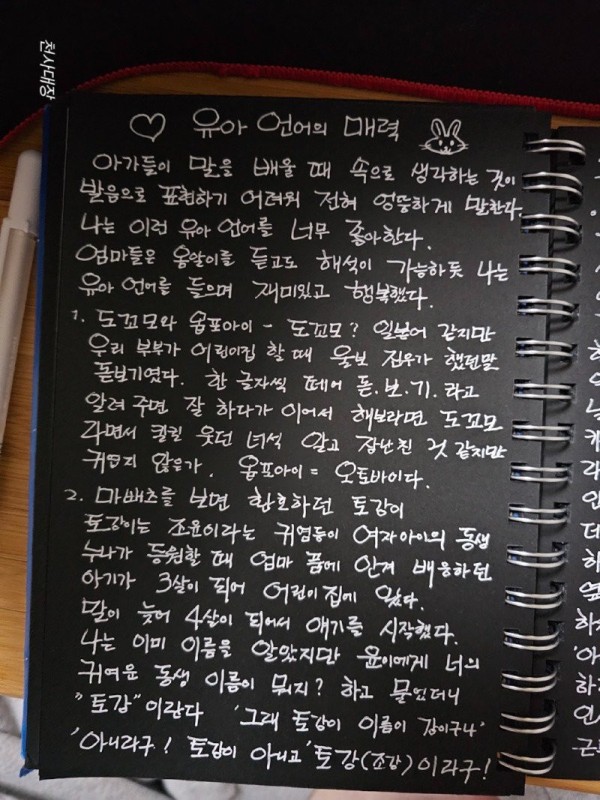 천사대장
♡ 유아 언어의 매력
아가들이 말을 배울 때 속으로 생각하는 것이
발음으로 표현하기 어려워 전혀 엉뚱하게 말한다.
나는 이런 유아 언어를 너무 좋아한다.
엄마들은 옹알이를 듣고도 해석이 가능하듯 나는
유아 언어를 들으며 재미있고 행복했다.
1. 도꼬모와 옴포아이 - 도꼬모? 일본어 같지만
우리 부부가 어린이집 할 때 울보 진우가 했던말
돋보기였다. 한 글자씩 떼어 돋.보.기.라고
알려 주면 잘 하다가 이어서 해보라면 도꼬모
라면서 킬킬 웃던 녀석 알고 장난친 것 같지만
귀엽지 않은가. 옴포아이 = 오토바이다.
2. 마배초를 보면 환호하던 토강이
토강이는 조윤이라는 귀염둥이 여자아이의 동생
누나가 등원할 때 엄마 품에 안겨 배웅하던
아기가 3살이 되어 어린이집에 왔다.
말이 늦어 4살이 되어서 얘기를 시작했다.
나는 이미 이름을 알았지만 윤이에게 너의
귀여운 동생 이름이 뭐지? 하고 물었더니
"토강"이란다 '그래 토강이 이름이 강이구나'
'아니라구! 토강이 아니고 '토강(조강)이라구!